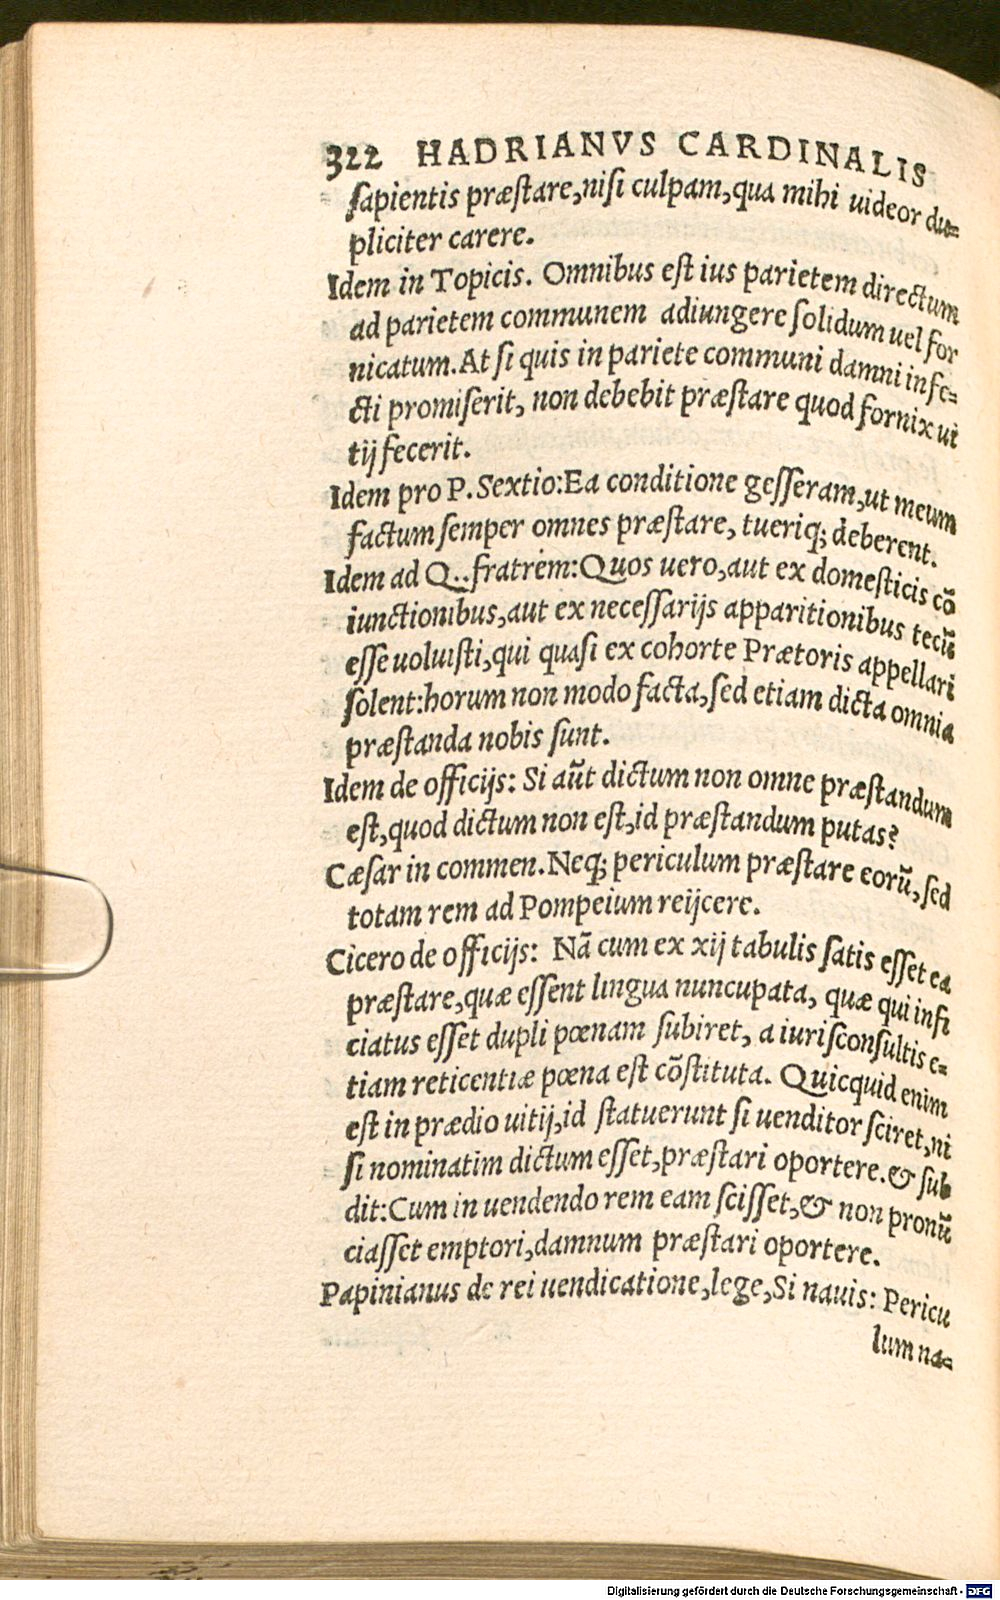 322 HADRIANVS CARDINALIS
ſapientis præſtare,niſi culpam,qua mihi uideor du=
pliciter carere.
Idem in Topicis. Omnibus eſt ius parietem directum
ad parietem communem adiungere ſolidum uel for
nicatum.At ſi quis in pariete communi damni infe=
cti promiſerit, non debebit præſtare quod fornix ui
tij fecerit.
Idem pro P.Sextio:Ea conditione geſſeram,ut meum
factum ſemper omnes præſtare, tueriq; deberent.
Idem ad Q..fratrem:Quos uero,aut ex domeſticis cō
iunctionibus,aut ex neceſſarijs apparitionibus tecū
eſſe uoluiſti,qui quaſi ex cohorte Prætoris appellari
ſolent:horum non modo facta,ſed etiam dicta omnia
præſtanda nobis ſunt.
Idem de officijs: Si aūt dictum non omne præſtandum
eſt,quod dictum non eſt,id præſtandum putas?
Cæſar in commen.Neq; periculum præſtare eorū,ſed
totam rem ad Pompeium reijcere.
Cicero de officijs: Nā cum ex xij tabulis ſatis eſſet ea
præſtare,quæ eſſent lingua nuncupata, quæ qui infi
ciatus eſſet dupli pœnam ſubiret, a iuriſconſultis e=
tiam reticentiæ pœna eſt cōſtituta. Quicquid enim
eſt in prædio uitij,id ſtatuerunt ſi uenditor ſciret,ni
ſi nominatim dictum eſſet,præſtari oportere.& ſub
dit:Cum in uendendo rem eam ſciſſet,& non pronū
ciaſſet emptori,damnum præſtari oportere.
Papinianus de rei uendicatione,lege,Si nauis: Pericu
lum na=
Digitalisierung gefördert durch die Deutsche Forschungsgemeinschaft - DFG